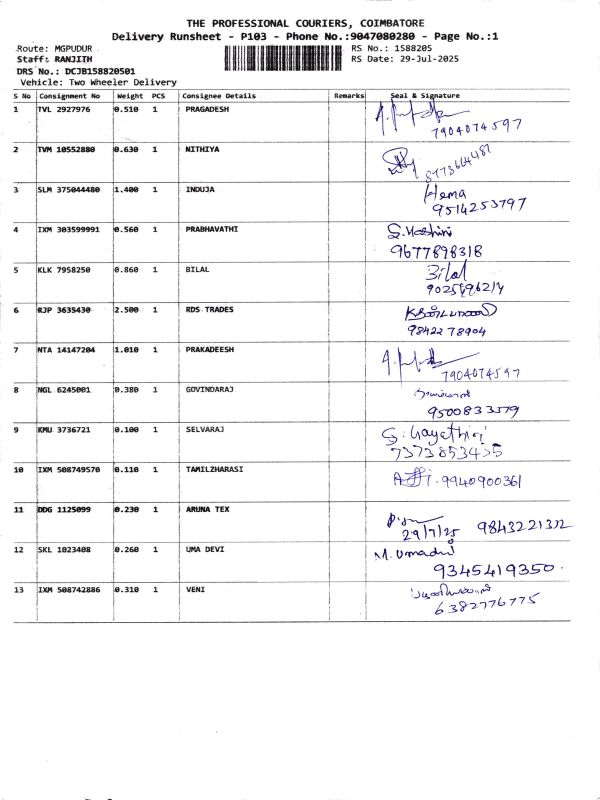 THE PROFESSIONAL COURIERS, COIMBATORE
Delivery Runsheet - P103 - Phone No.:9047080280 - Page No.:1
Route: MGPUDUR RS No.: 1588205
Staff: RANJITH RS Date: 29-Jul-2025
DRS No.: DCJB158820501
Vehicle: Two Wheeler Delivery
S No Consignment No Weight PCS Consignee Details Remarks Seal & Signature
1 TVL 2927976 0.510 1 PRAGADESH
7904074597
2 TVM 10552880 0.630 1 NITHIYA
3 SLM 375044480 1.400 1 INDUJA Hema
9514253797
4 IXM 303599991 0.560 1 PRABHAVATHI S. Harshini
9677898318
5 KLK 7958250 0.860 1 BILAL Bilal
6 RJP 3635430 2.500 1 RDS TRADES
98422 78904
7 NTA 14147204 1.010 1 PRAKADEESH
7904074597
8 NGL 6245001 0.380 1 GOVINDARAJ
9500833579
9 KMU 3736721 0.100 1 SELVARAJ S. Gayathiri
7373853455
10 IXM 508749570 0.110 1 TAMILZHARASI 9940900361
11 DDG 1125099 0.230 1 ARUNA TEX
29/7/25 9843221312
12 SKL 1023408 0.260 1 UMA DEVI M. Umadevi
9345419350
13 IXM 508742886 0.310 1 VENI
6382776775